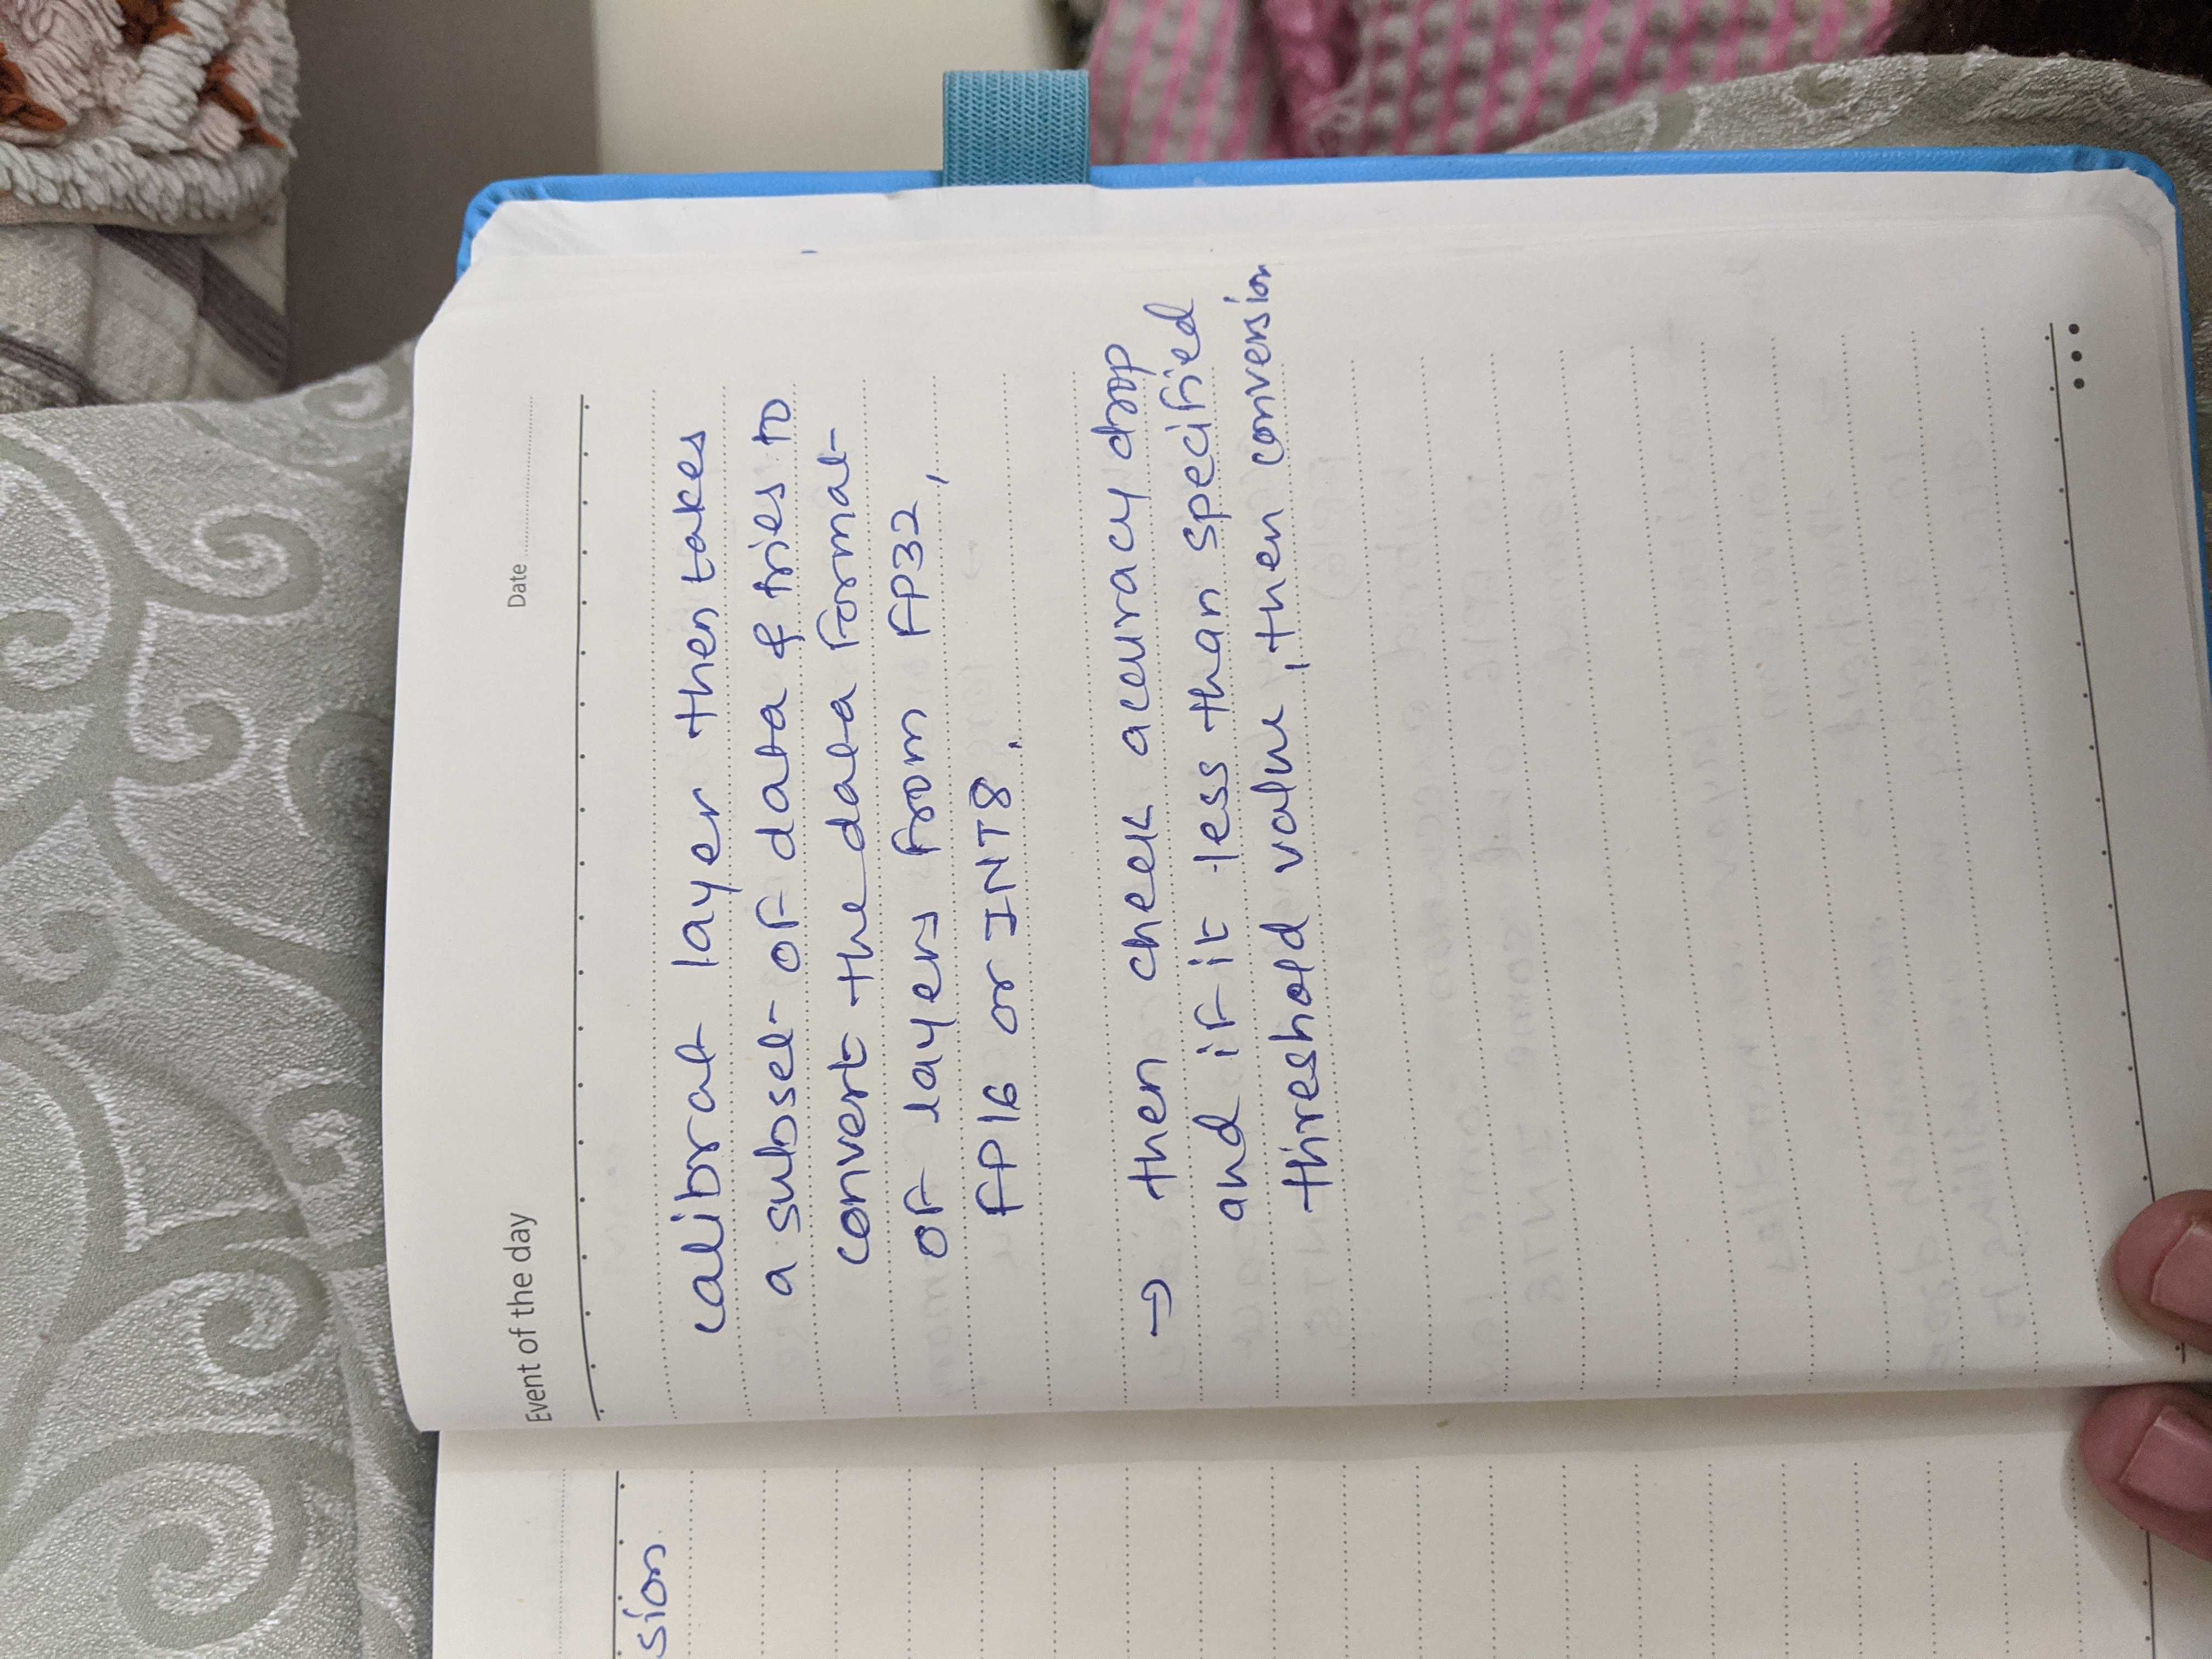 Event of the day Date
calibrat layer then takes
a subset of data & tries to
convert the data format
of layers from FP32,
FP16 or INT8.
→ then check accuracy drop
and if it less than specified
threshold value, then conversion
sion